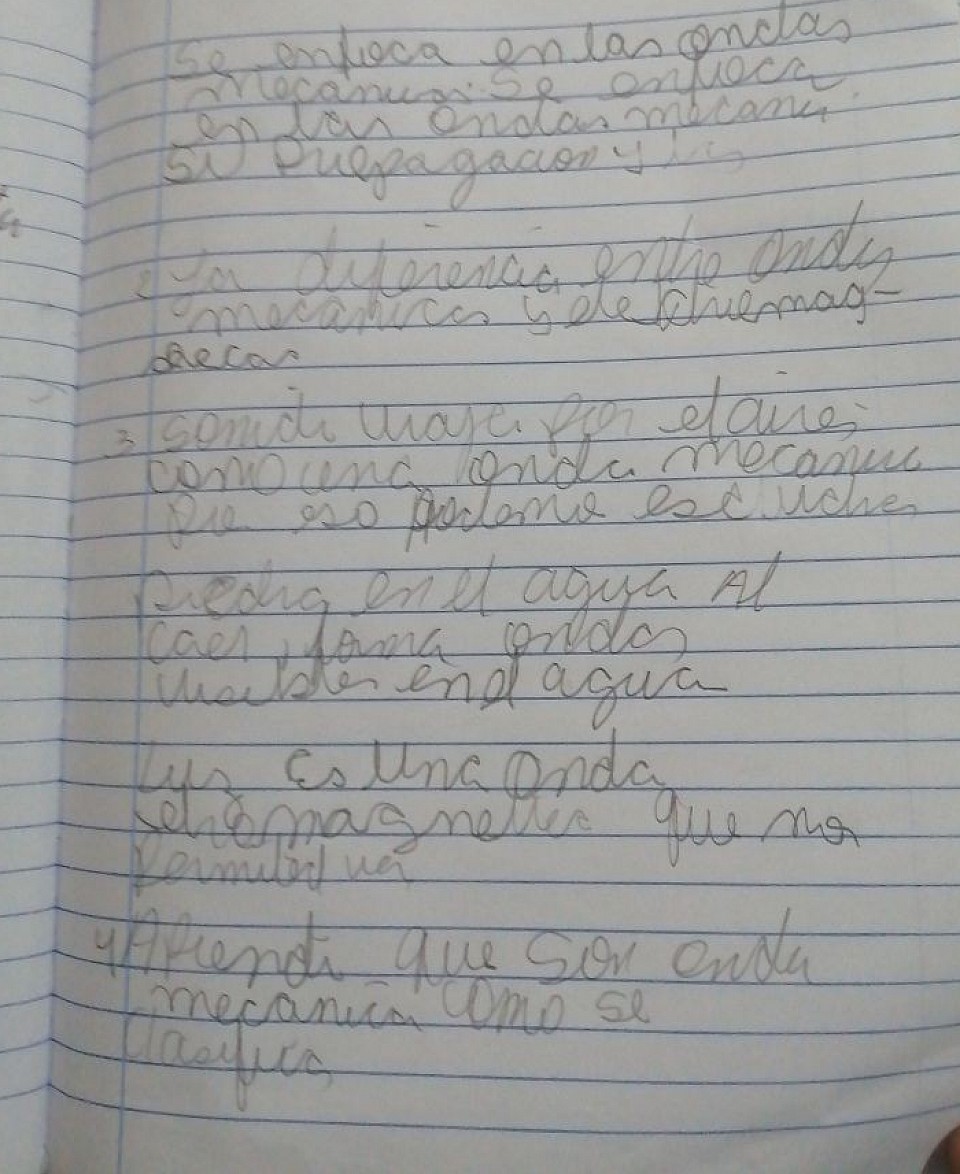 Se enfoca en las ondas
mecanicas. Se enfoca
en las ondas mecani
Su Puepagacion y
2 La diferencia entre ondas
mecanicas y de
necas
3 Sonido viaja por el aire,
como una onda mecanica
Por eso podemo escuchar
Piedra en el agua Al
caer, forma ondas
visibles en el agua
Luz Es Una onda
eletromagnetica que nos
permite ver
4 Aprendi que son onda
mecanica como se
clasifica